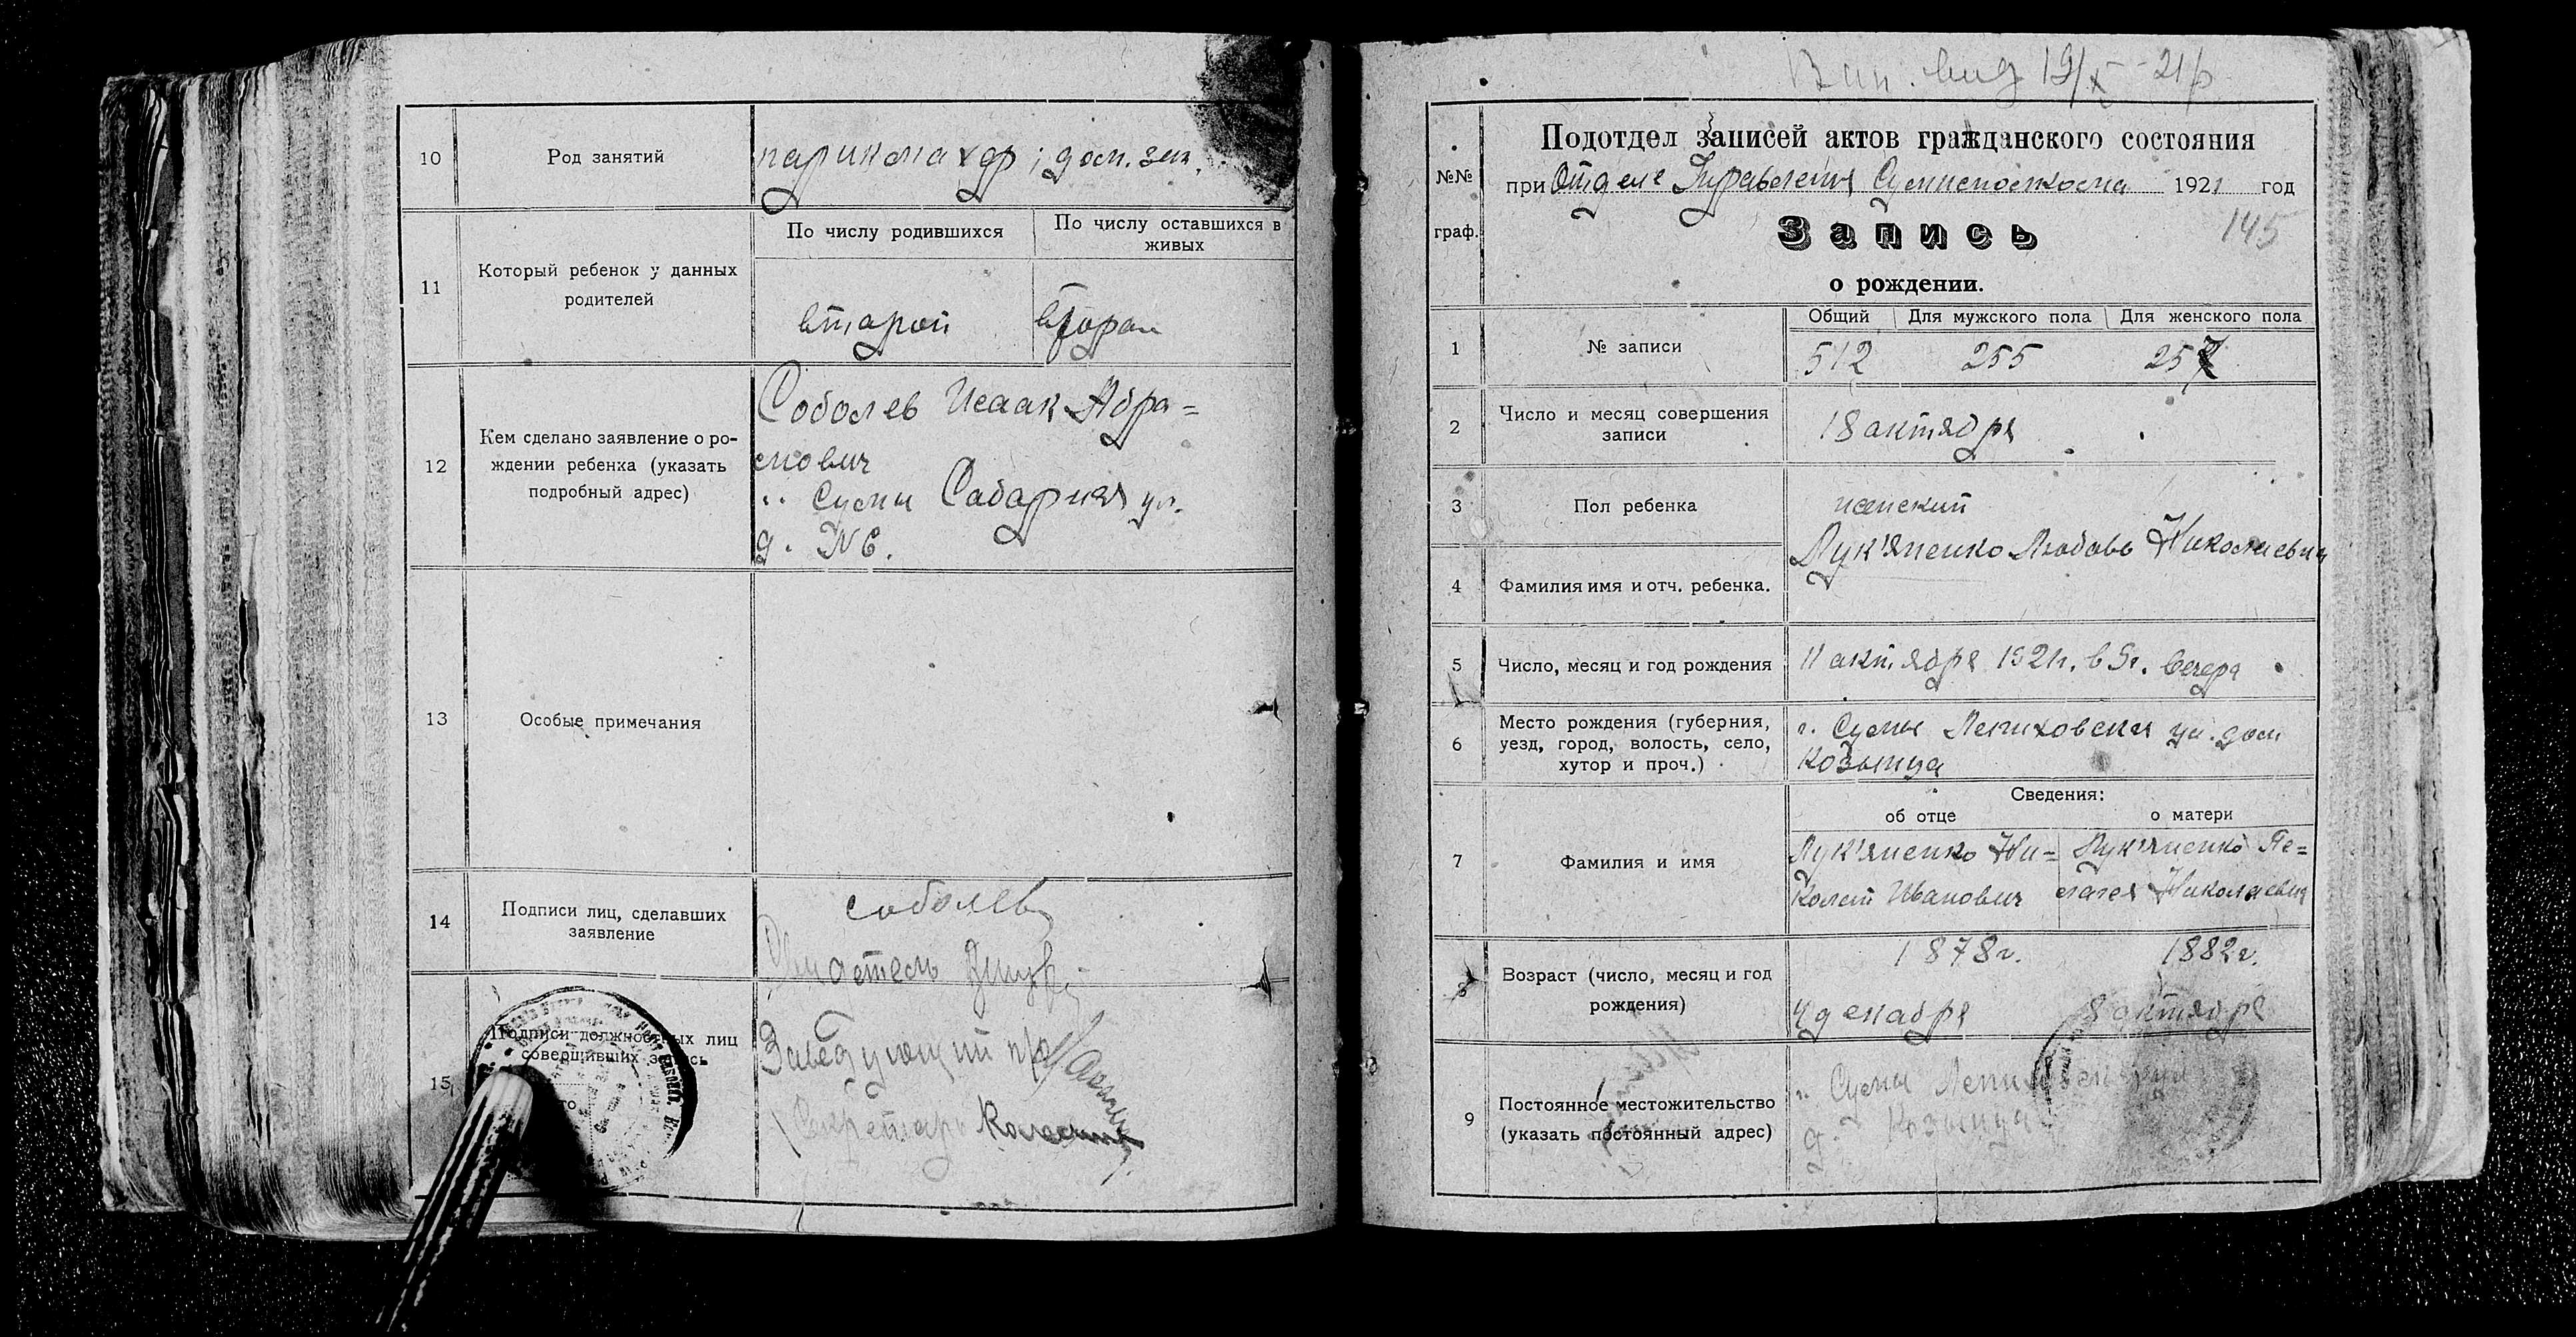 10
Род занятий
парикмахер; дом. зан.
11
Который ребенок у данных
родителей
По числу родившихся
По числу оставшихся в
живых
второй
второй
12
Кем сделано заявление о ро-
ждении ребенка (указать
подробный адрес)
Соболев Исаак Абра=
мович
г. Сумы Соборная ул.
д. №6.
13
Особые примечания
14
Подписи лиц, сделавших
заявление
Соболев
Свидетель
15
Подписи должностных лиц
совершивших запись
Заведующий п/о
Секретарь
Вып. вид 19/X-21 г
№№
граф.
Подотдел записей актов гражданского состояния
при Отделе Управления 1921 год
145
Запись
о рождении.
1
№ записи
Общий
Для мужского пола
Для женского пола
512
255
257
2
Число и месяц совершения
записи
18 октября
3
Пол ребенка
женский
4
Фамилия имя и отч. ребенка.
Лук'яненко Любовь Николаевна
5
Число, месяц и год рождения
11 октября 1921г. в 5г. вечера
6
Место рождения (губерния,
уезд, город, волость, село,
хутор и проч.)
г. Сумы ул. дом
Козьмица
Сведения:
об отце
о матери
7
Фамилия и имя
Лук'яненко Ни=
колай Иванович
Лук'яненко Пе=
лагея Николаевна
8
Возраст (число, месяц и год
рождения)
1878г.
4 декабря
1882г.
8 октября
9
Постоянное местожительство
(указать постоянный адрес)
г. Сумы
д. Козьмица